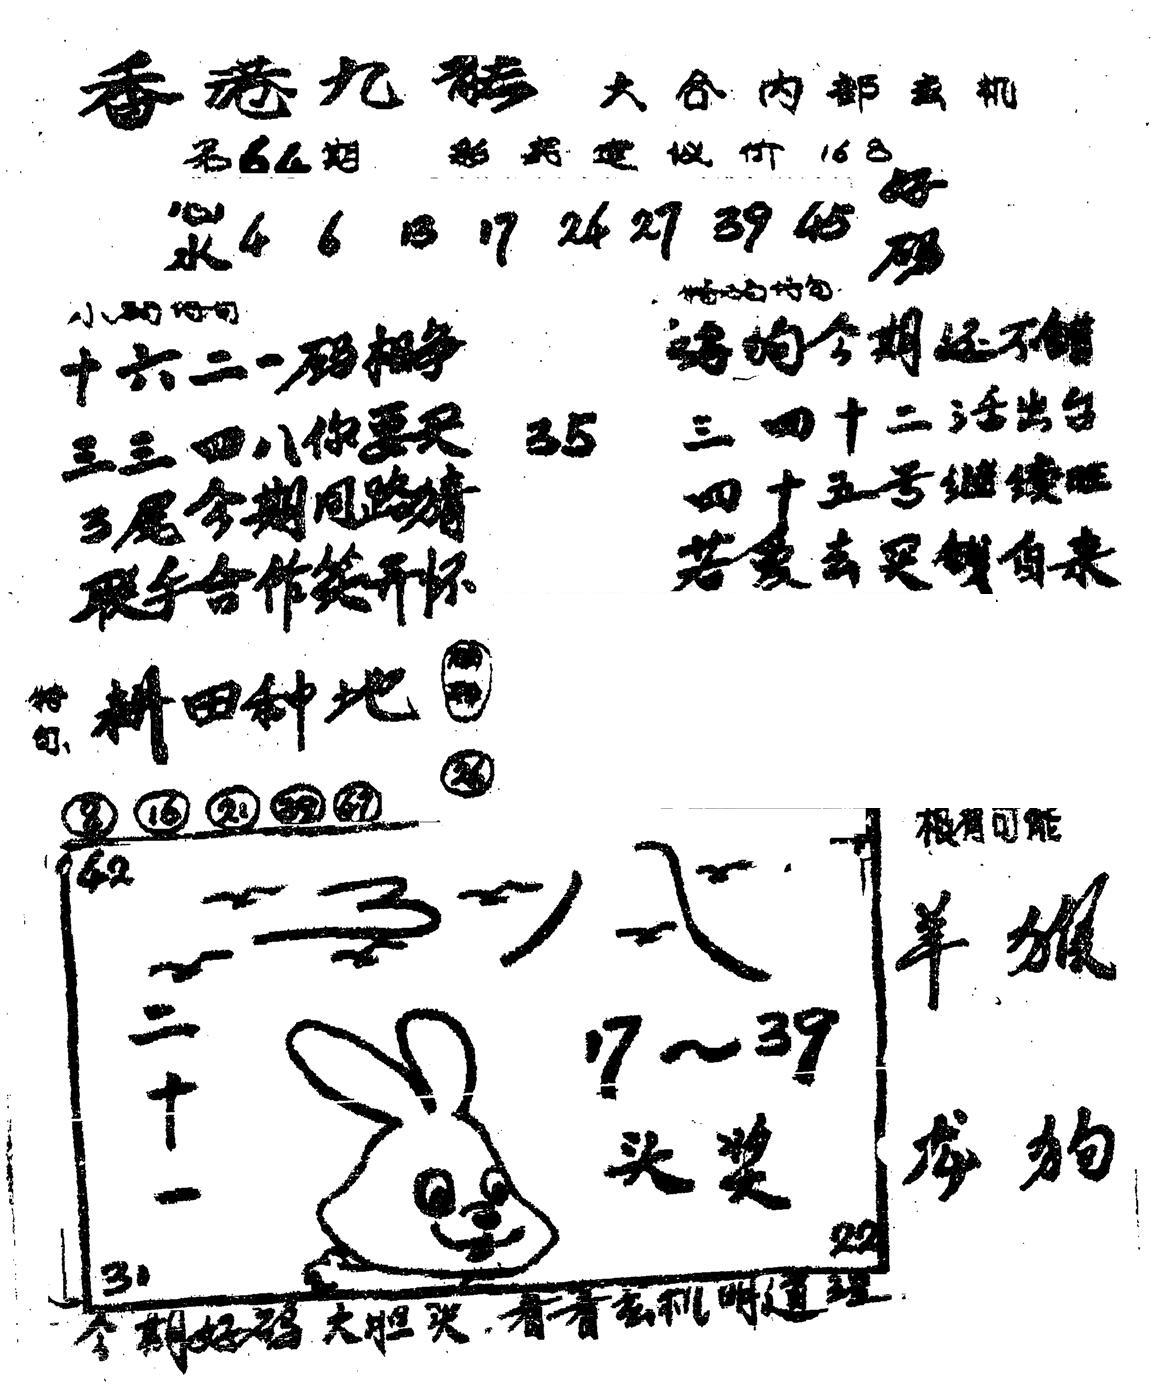 香港九龙 六合内部玄机
第64期 彩民建议价168
心水 4 6 13 17 24 27 39 45 好码
十六二一码相争
三三四八你要买
3尾今期同路猜
联手合作笑开怀
35
猪狗今期还不错
三四十二活出台
四十五号继续旺
若爱去买钱自来
特句 耕田种地
26
8 16 21 39 49
42
二十一
17～39
头奖
31
22
极有可能
羊猴
龙狗
今期好码大胆买 看看玄机明道理